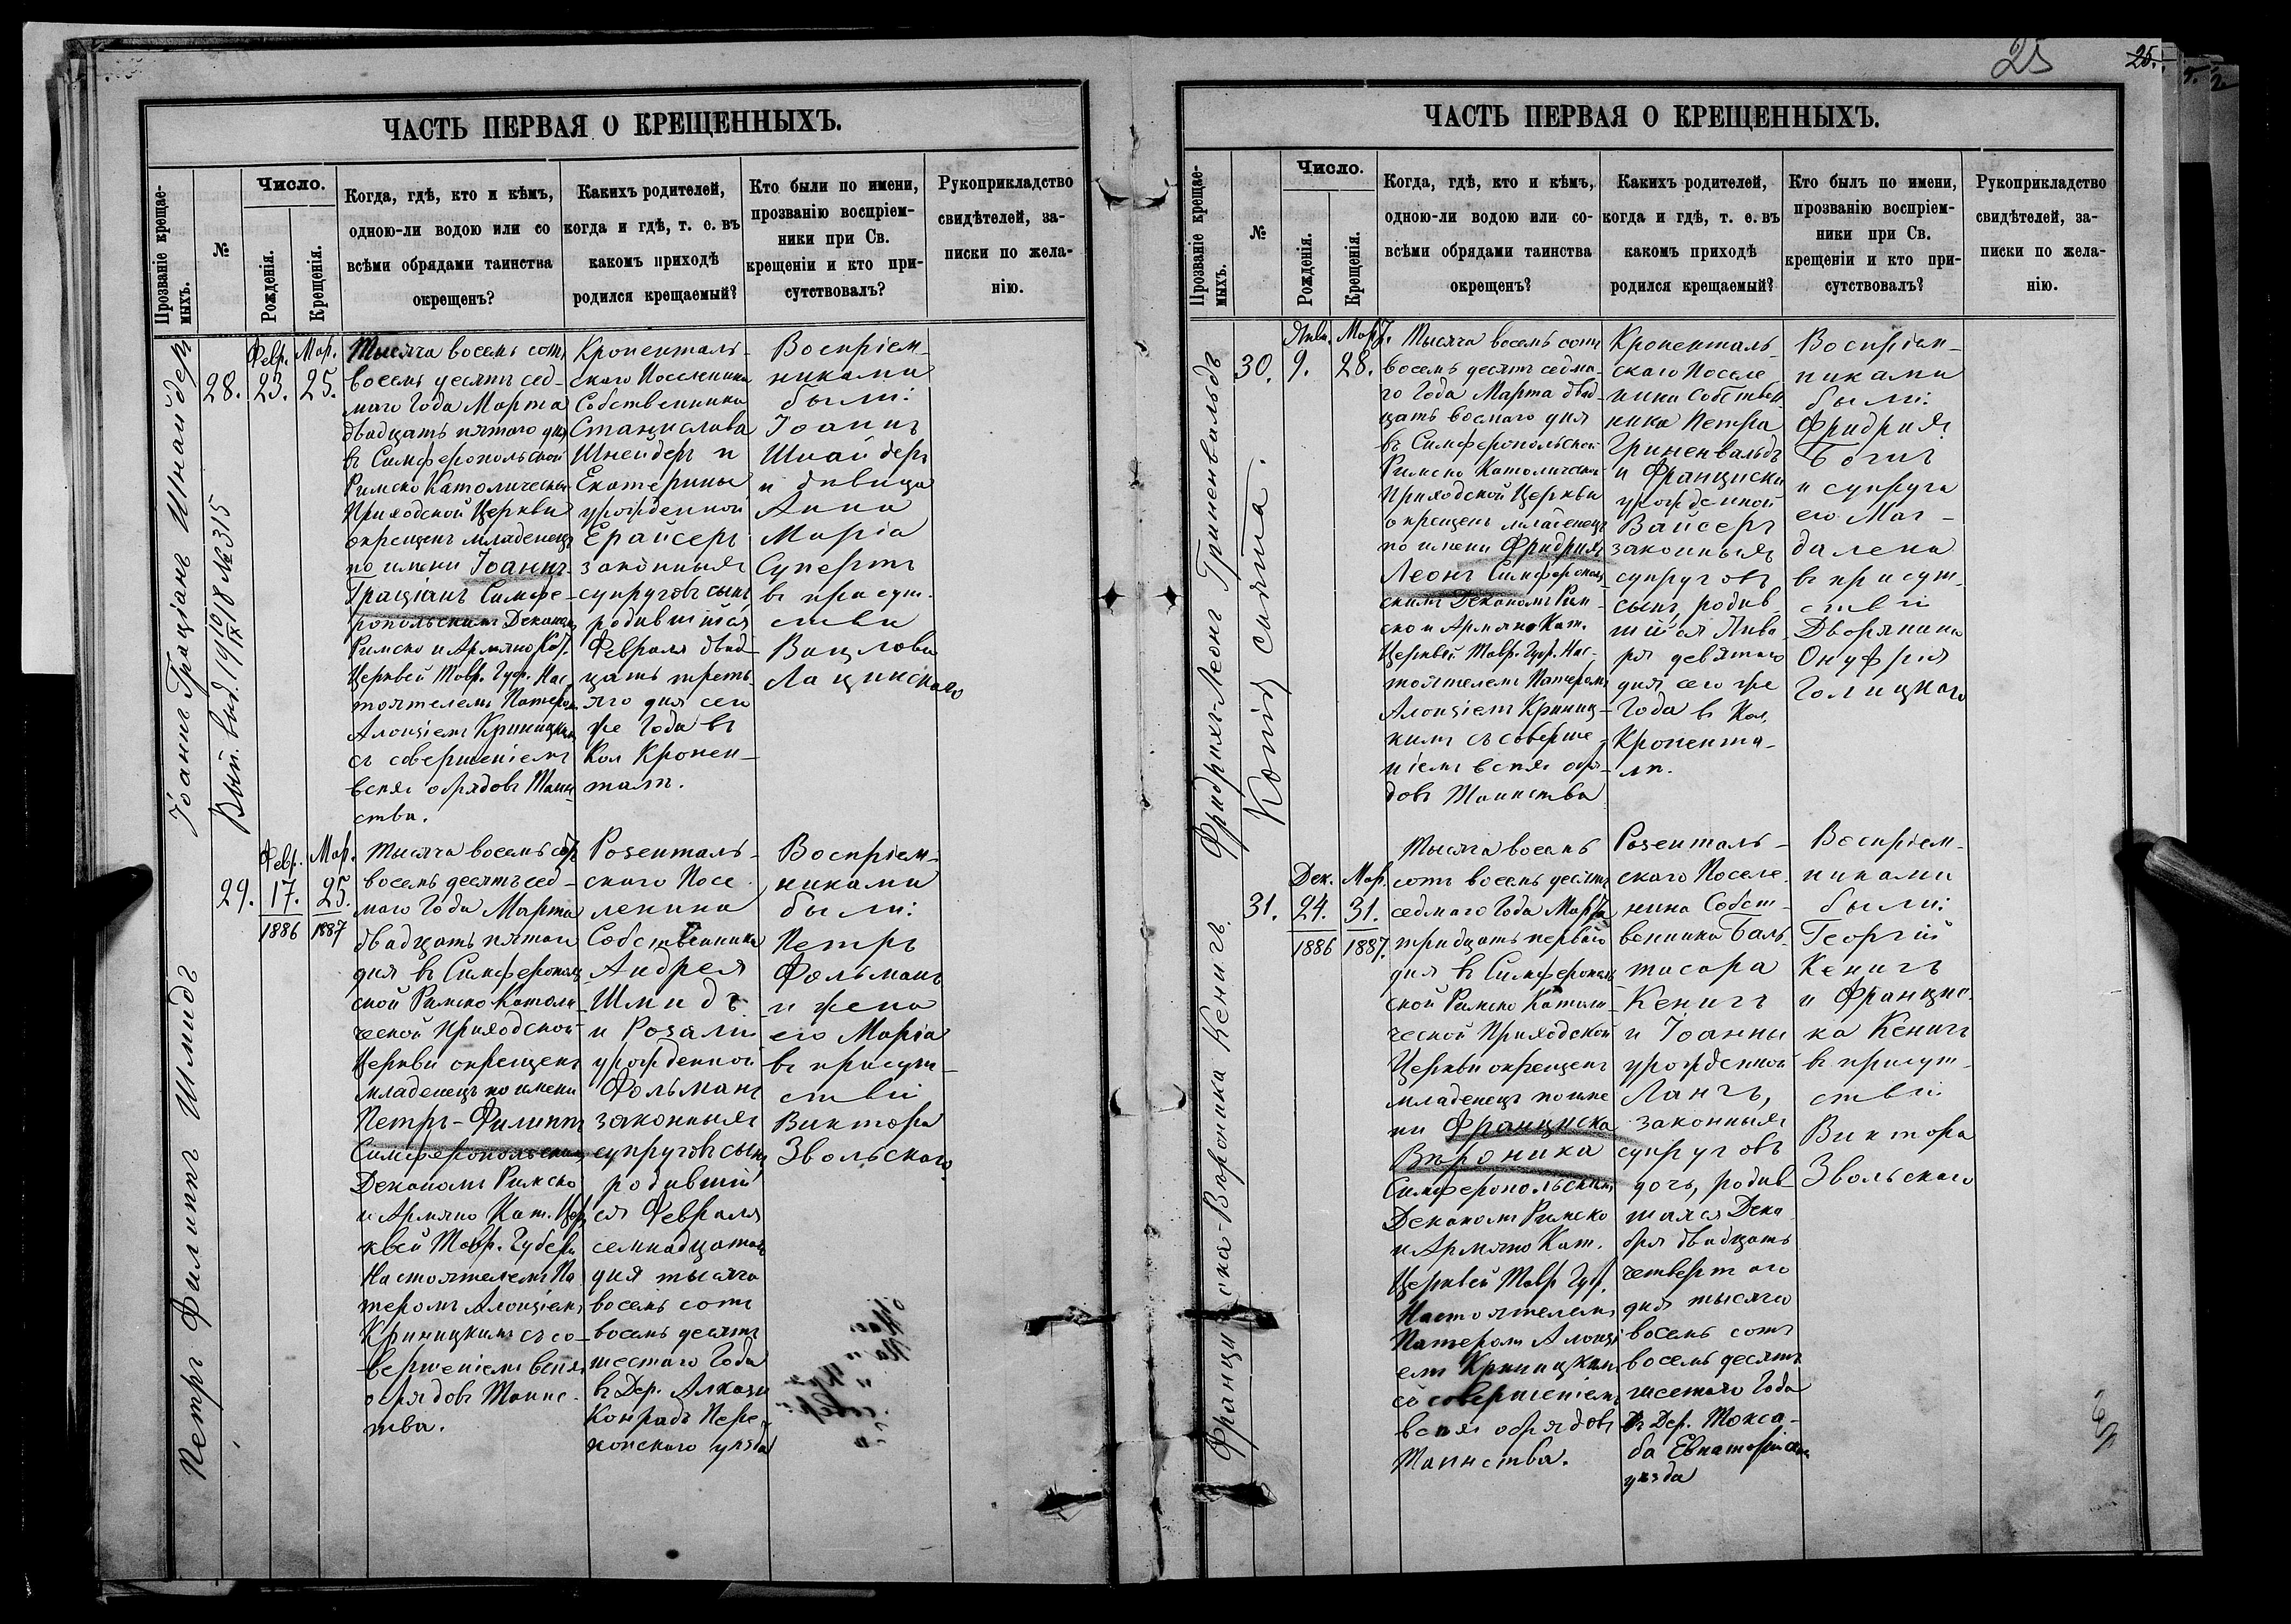 25
25.
ЧАСТЬ ПЕРВАЯ О КРЕЩЕННЫХЪ.
Прозваніе крещае-
мыхъ.
№
Число.
Рожденія.
Крещенія.
Когда, гдѣ, кто и кѣмъ,
одною-ли водою или со
всѣми обрядами таинства
окрещенъ?
Какихъ родителей,
когда и гдѣ, т. е. въ
какомъ приходѣ
родился крещаемый?
Кто были по имени,
прозванію воспріем-
ники при Св.
крещеніи и кто при-
сутствовалъ?
Рукоприкладство
свидѣтелей, за-
писки по жела-
нію.
Іоаннъ Граціанъ Шнайдеръ
Вып. выд. 19 10/IX 18 № 315
28.
Февр.
23.
Мар.
25.
Тысяча восемь сотъ
восемь десятъ сед-
маго Года Марта
двадцать пятого дня
въ Симферопольской
Римско Католической
Приходской Церкви
окрещенъ младенецъ
по имени Іоаннъ-
Граціанъ Симфе-
ропольскимъ Деканомъ
Римско и Армяно Кат.
Церквей Тавр. Губ. Нас-
тоятелемъ Патером
Алоизіемъ Криницкимъ
съ совершеніемъ
всѣхъ обрядовъ Таин-
ства.
Кроненталь-
скаго Поселенина
Собственника
Станислава
Шнейдеръ и
Екатерины
урожденной
Ерайсеръ
законныхъ
супруговъ сынъ
родившійся
Февраля двад-
цать треть-
яго дня сего
же Года въ
Кол Кронен-
талъ.
Воспріем-
никами
были:
Іоаннъ
Шнайдеръ
и дѣвица
Анна
Марія
Супертъ
въ присут-
ствіи
Вацлова
Лацинскаго
Петръ Филиппъ Шмидъ
29.
Февр.
17.
1886
Мар.
25.
1887
Тысяча восемь сот
восемь десятъ сед-
маго Года Марта
двадцать пятаго
дня въ Симферополь
ской Римско Католи
ческой Приходской
Церкви окрещенъ
младенецъ по имени
Петръ-Филиппъ
Симферопольскимъ
Деканомъ Римско
и Армяно Кат. Цер
квей Тавр. Губерн
Настоятелемъ Па
теромъ Алоизіемъ
Криницкимъ съ со-
вершеніемъ всѣхъ
обрядовъ Таинс-
тва.
Розенталь-
скаго Посе
ленина
Собственника
Андрея
Шмидъ
и Розали
урожденной
Фольманъ
законныхъ
супруговъ сынъ
родившій
ся Февраля
семнадцатаго
дня тысяча
восемь сотъ
восемь десятъ
шестаго Года
въ Дер. Алкази
Конрадъ Пере-
копскаго уѣзда
Воспріем-
никами
были:
Петръ
Фольманъ
и жена
его Марія
въ присут-
ствіи
Виктора
Звольскаго
ЧАСТЬ ПЕРВАЯ О КРЕЩЕННЫХЪ.
Прозваніе крещае-
мыхъ.
№
Число.
Рожденія.
Крещенія.
Когда, гдѣ, кто и кѣмъ,
одною-ли водою или со-
всѣми обрядами таинства
окрещенъ?
Какихъ родителей,
когда и гдѣ, т. е. въ
какомъ приходѣ
родился крещаемый?
Кто былъ по имени,
прозванію воспріем-
ники при Св.
крещеніи и кто при-
сутствовалъ?
Рукоприкладство
свидѣтелей, за-
писки по жела-
нію.
Фридрихъ-Леонъ Гриненвальдъ
Копія снята.
30.
Янв.
9.
Март.
28.
Тысяча восемь сотъ
восемь десятъ седма-
го Года Марта двад-
цать восмаго дня
въ Симферопольской
Римско Католической
Приходской Церкви
окрещенъ младенецъ
по имени Фридрихъ
Леонъ Симферополь
скимъ Деканомъ Рим-
ско и Армяно Кат.
Церквей Тавр. Губ. Нас-
тоятелемъ Патеромъ
Алоизіемъ Криниц-
кимъ съ соверше-
ніемъ всѣхъ обря-
довъ Таинства
Кроненталь-
скаго Поселе
нина Собствен
ника Петра
Гриненвальдъ
и Франциски
урожденной
Вайсеръ
законныхъ
супруговъ
сынъ, родив-
шійся Янва
ря девятаго
дня сего же
Года въ Кол.
Кронента-
лѣ.
Воспріем-
никами
были:
Фридрихъ
Богнъ
и супруга
его Маг-
далена
въ присут-
ствіи
Дворянина
Онуфрія
Голицкаго
Франциска-Вѣроника Кенигъ
31.
Дек.
24.
1886
Мар.
31.
1887.
Тысяча восемь
сотъ восемь десятъ
седмаго Года Марта
тридцать перваго
дня въ Симферополь
ской Римско Католи
ческой Приходской
Церкви окрещенъ
младенецъ по име
ни Франциска
Вѣроника
Симферопольскимъ
Деканомъ Римско
и Армяно Кат.
Церквей Тавр Губ.
Настоятелемъ
Патеромъ Алоизі
емъ Криницкимъ
съ совершеніемъ
всѣхъ обрядовъ
Таинства.
Розенталь-
скаго Поселе-
нина Собст-
венника Баль-
тасара
Кенигъ
и Іоанны
урожденной
Лангъ,
законныхъ
супруговъ
дочь, родив-
шаяся Дека
бря двадцать
четвертаго
дня тысяча
восемь сотъ
восемь десятъ
шестаго Года
въ Дер. Токса-
ба Евпаторійскаго
уѣзда
Воспріем-
никами
были:
Георгій
Кенигъ
и Францис-
ка Кенигъ
въ присут-
ствіи
Виктора
Звольскаго